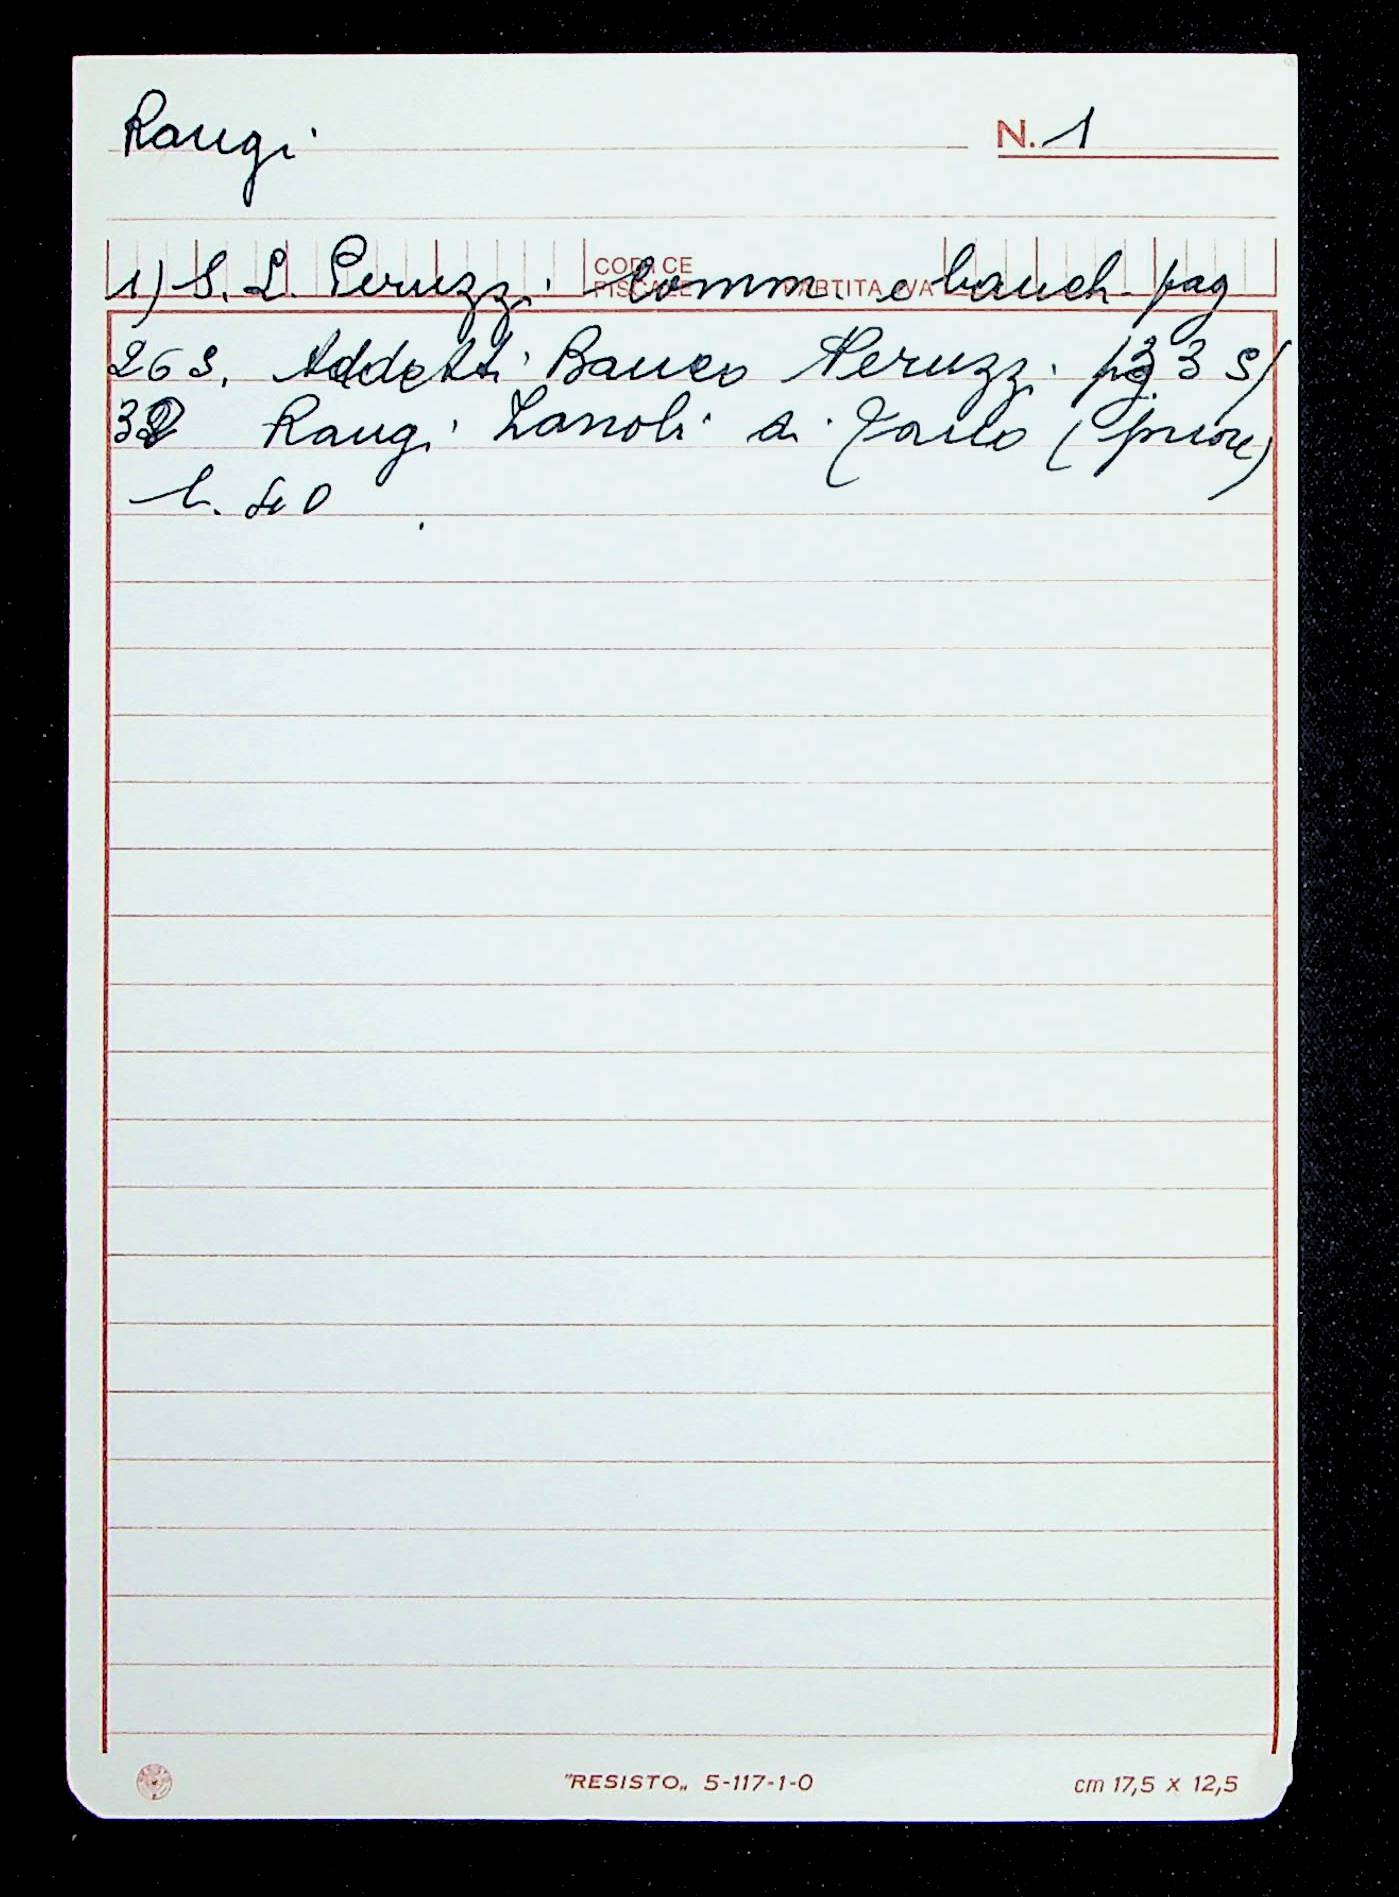 Raugi N. 1
CODICE FISCALE PARTITA IVA
1) S. L. Peruzzi Comm. e banch. pag
263. Addetti Banco Peruzzi 133 S/
32 Raugi Zanobi di (priore)
L.
"RESISTO„ 5-117-1-0 cm 17,5 x 12,5